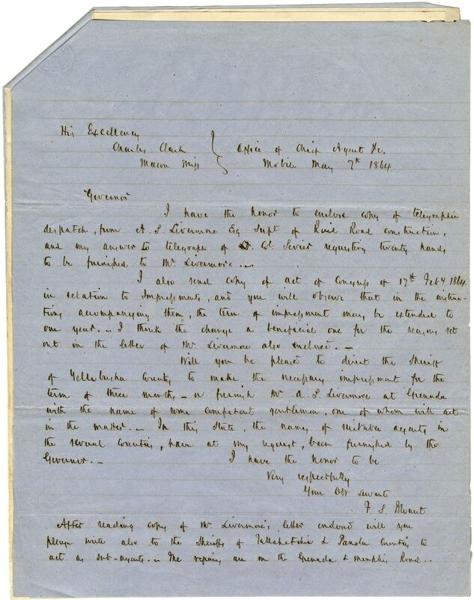 His Excellency
Charles Clark
Macon Miss
Office of Chief Agent &c.
Mobile May 7th 1864
Governor
I have the honor to enclose copy of telegraphic
despatch, from A. S. Livermore Esq Supt of Rail Road construction,
and my answer to telegraph of Lt. Col Sevier requesting twenty hands
to be furnished to Mr Livermore. -
I also send copy of act of Congress of 17th Feby 1864
in relation to Impressment, and you will observe that in the instruc-
tions accompanying them, the term of impressment may be extended to
one year. - I think the change a beneficial one for the reasons set
out in the letter of Mr Livermore also enclosed. -
Will you be pleased to direct the Sheriff
of Yallobusha County to make the necessary impressment for the
term of three months, - or furnish Mr A. S Livermore at Grenada
with the name of some competent gentlemen, one of whom will act
in the matter. - In this State, the names of suitable agents in
the several Counties, have at my request, been furnished by the
Governor. -
I have the honor to be
Very respectfully
Your Obt servant
After reading copy of Mr Livermore's letter enclosed will you
please write also to the Sheriffs of Tallahatchie & Panola Counties to
act as sub-agents. - The repairs are on the Grenada & Memphis Road. -